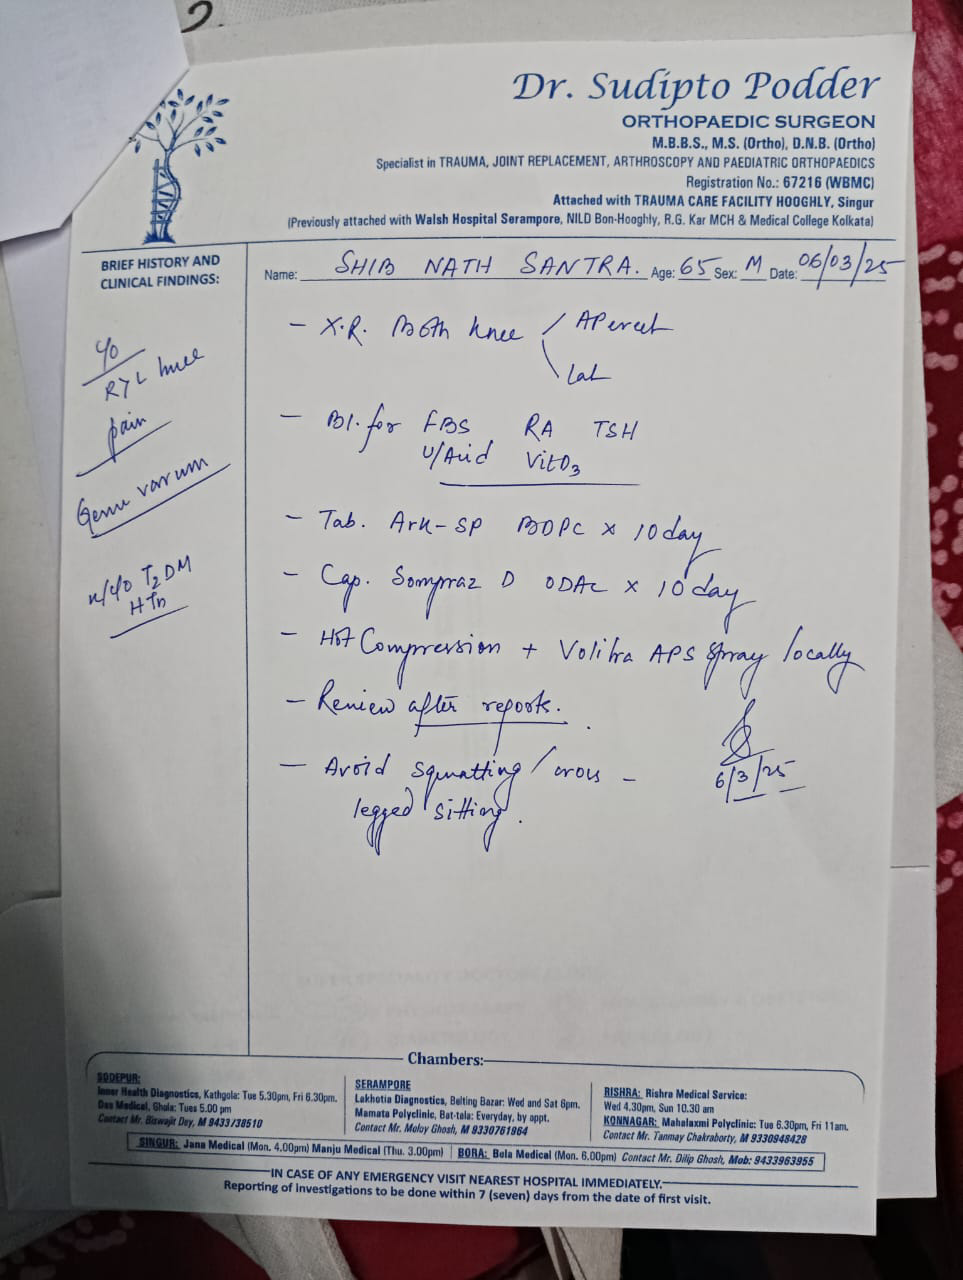 2.
Dr. Sudipto Podder
ORTHOPAEDIC SURGEON
M.B.B.S., M.S. (Ortho), D.N.B. (Ortho)
Specialist in TRAUMA, JOINT REPLACEMENT, ARTHROSCOPY AND PAEDIATRIC ORTHOPAEDICS
Registration No.: 67216 (WBMC)
Attached with TRAUMA CARE FACILITY HOOGHLY, Singur
(Previously attached with Walsh Hospital Serampore, NILD Bon-Hooghly, R.G. Kar MCH & Medical College Kolkata)
BRIEF HISTORY AND
CLINICAL FINDINGS:
Name: SHIB NATH SANTRA. Age: 65 Sex: M Date: 06/03/25
c/o
R7L knee
pain
Genu varum
k/c/o T2DM
HTn
- X.R. Both knee / AP erect
\ Lat
- Bl. for FBS RA TSH
U/Acid VitD3
- Tab. Ark-SP BDPC x 10 day
- Cap. Sompraz D ODAC x 10 day
- Hot Compression + Volitra APS Spray locally
- Review after reports.
- Avoid squatting / cross -
legged sitting.
6/3/25
Chambers:
SODEPUR:
Inner Health Diagnostics, Kathgola: Tue 5.30pm, Fri 6.30pm.
Das Medical, Ghola: Tues 5.00 pm
Contact Mr. Biswajit Dey, M 9433738510
SERAMPORE
Lakhotia Diagnostics, Belting Bazar: Wed and Sat 6pm.
Mamata Polyclinic, Bat-tala: Everyday, by appt.
Contact Mr. Moloy Ghosh, M 9330761964
RISHRA: Rishra Medical Service:
Wed 4.30pm, Sun 10.30 am
KONNAGAR: Mahalaxmi Polyclinic: Tue 6.30pm, Fri 11am.
Contact Mr. Tanmay Chakraborty, M 9330948428
SINGUR: Jana Medical (Mon. 4.00pm) Manju Medical (Thu. 3.00pm) | BORA: Bela Medical (Mon. 6.00pm) Contact Mr. Dilip Ghosh, Mob: 9433963955
IN CASE OF ANY EMERGENCY VISIT NEAREST HOSPITAL IMMEDIATELY.
Reporting of Investigations to be done within 7 (seven) days from the date of first visit.